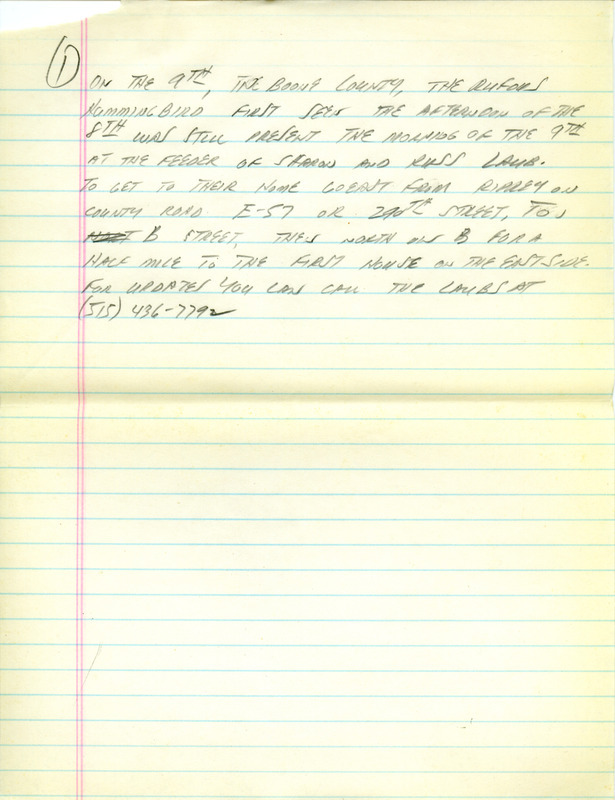 1
ON THE 9TH, THE BOONE COUNTY, THE RUFOUS
HUMMINGBIRD FIRST SEEN THE AFTERNOON OF THE
8TH WAS STILL PRESENT THE MORNING OF THE 9TH
AT THE FEEDER OF SHARON AND RUSS LAUB.
TO GET TO THEIR HOME GO EAST FROM RIPPEY ON
COUNTY ROAD E-57 OR 290TH STREET, TO
B STREET, THEN NORTH ON B FOR A
HALF MILE TO THE FIRST HOUSE ON THE EAST SIDE.
FOR UPDATES YOU CAN CALL THE LAUBS AT
(515) 436-7792